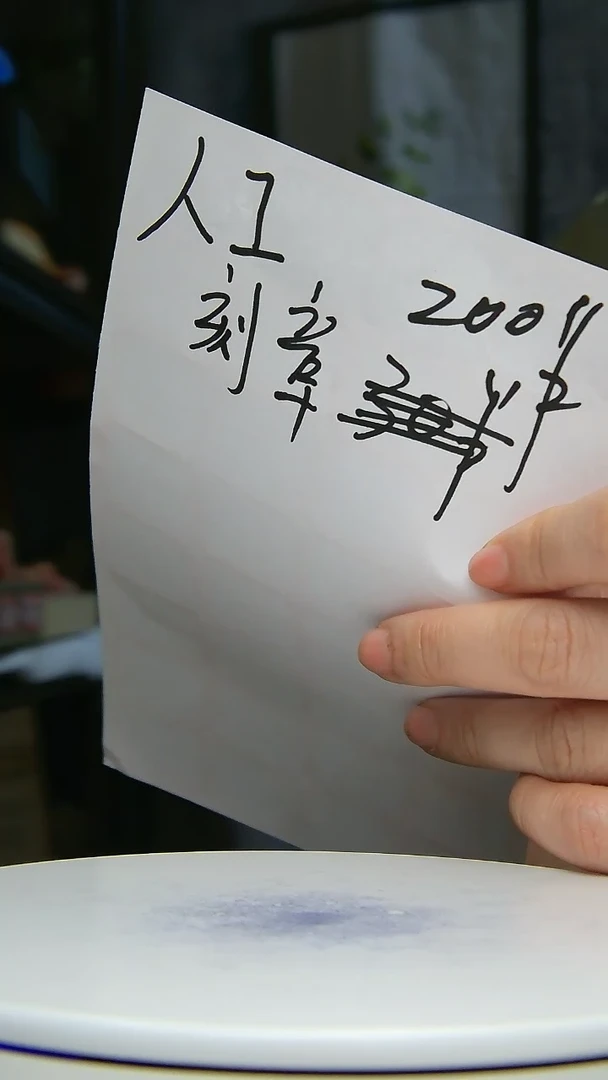 人工
刻章
200件